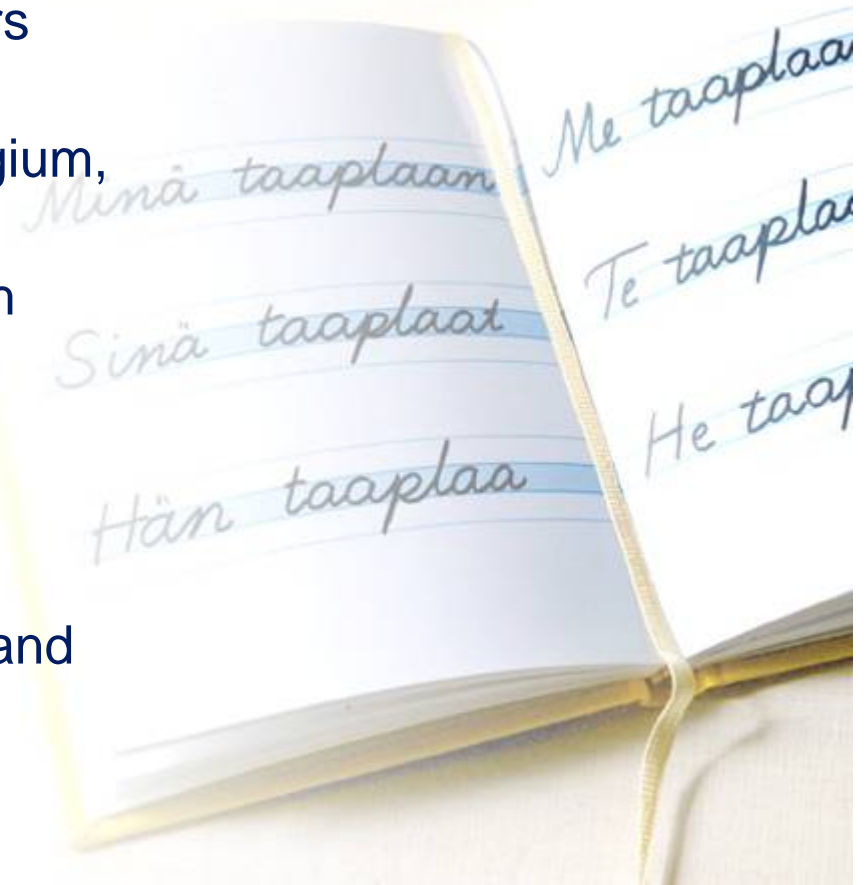 rs
gium,
n
and
Minä taaplaan
Sinä taaplaat
Hän taaplaa
Me taaplaa
Te taapla
He taap